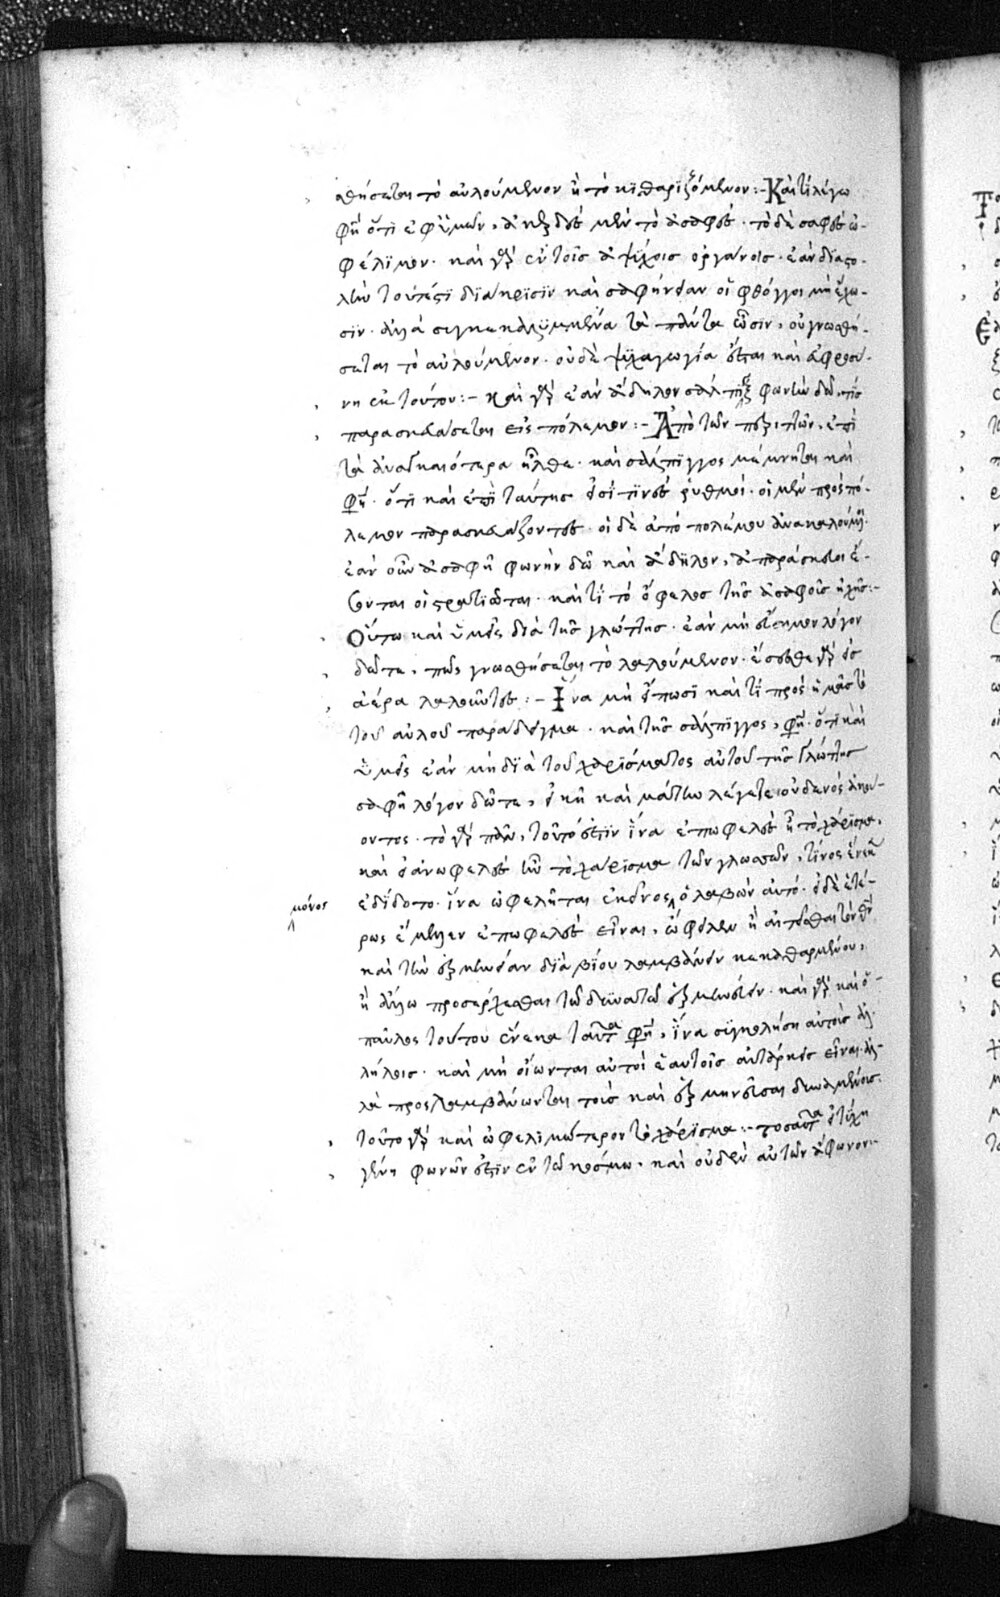 σθήσεται τὸ αὐλούμενον ἢ τὸ κιθαριζόμενον:- Καὶ τί λέγω
φη ὅτι ἐφ' ἡμῶν, ἀκερδὲς μὲν τὸ ἀσαφὲς· τὸ δὲ σαφὲς ὠ-
φέλιμον· καὶ γὰρ ἐν τοῖς ἀψύχοις ὀργάνοις· ἐὰν διαστο-
λὴν τουτέστι διάκρισιν καὶ σαφήνειαν οἱ φθόγγοι μὴ ἔχω-
σιν· ἀλλὰ συγκεκαλυμμένα τὰ πάντα ὦσιν, οὐ γνωσθή-
σεται τὸ αὐλούμενον· οὐδὲ ψυχαγωγία ἔσται καὶ εὐφροσύ-
νη ἐκ τούτου:- καὶ γὰρ ἐὰν ἄδηλον σάλπιγξ φωνὴν δῶ, τίς
παρασκευάσεται εἰς πόλεμον:- Ἀπὸ τῶν περιττῶν, ἐπὶ
τὰ ἀναγκαιότερα ἦλθε· καὶ σάλπιγγος μέμνηται καὶ
φη· ὅτι καὶ ἐπὶ ταύτης εἰσί τινες ῥυθμοί· οἱ μὲν πρὸς πό-
λεμον παρασκευάζοντες· οἱ δὲ ἀπὸ πολέμου ἀνακαλούμενοι·
ἐὰν οὖν ἀσαφῆ φωνὴν δῶ καὶ ἄδηλον, ἀπαράσκευοι ἔ-
σονται οἱ στρατιῶται· καὶ τί τὸ ὄφελος τῆς ἀσαφοῦς ἠχῆς:-
Οὕτω καὶ ὑμεῖς διὰ τῆς γλώττης· ἐὰν μὴ εὔσημον λόγον
δῶτε, πῶς γνωσθήσεται τὸ λαλούμενον· ἔσεσθε γὰρ εἰς
ἀέρα λαλοῦντες:- Ἵνα μὴ εἴπωσι καὶ τί πρὸς ἡμᾶς τὸ
τοῦ αὐλοῦ παράδειγμα· καὶ τῆς σάλπιγγος, φη· ὅτι καὶ
ὑμεῖς ἐὰν μὴ διὰ τοῦ χαρίσματος αὐτοῦ τῆς γλώττης
σαφῆ λόγον δῶτε, εἰκῆ καὶ μάτην λέγετε οὐδενὸς ἀκού-
οντος· τὸ γὰρ πᾶν, τοῦτό ἐστιν ἵνα ἐπωφελὲς ᾖ τὸ χάρισμα,
καὶ εἰ ἀνωφελὲς ἦν τὸ χάρισμα τῶν γλωσσῶν, τίνος ἕνεκεν
ἐδίδοτο· ἵνα ὠφελῆται ἐκεῖνος ὁ λαβὼν αὐτό· εἰ δὲ ἑτέ-
μόνος
ροις ἔμελλεν ἐπωφελὲς εἶναι, ὤφειλεν ἢ αἰτεῖσθαι τὸν θεὸν
καὶ τὴν ἑρμηνείαν διὰ βίου λαμβάνειν κεκαθαρμένου,
ἢ ἄλλω προσέρχεσθαι τῶ δυναμένω ἑρμηνεύειν· καὶ γὰρ καὶ ὁ
παῦλος τούτου ἕνεκα ταῦτά φη, ἵνα συγκολλήση αὐτοὺς ἀλ-
λήλοις· καὶ μὴ οἴωνται αὐτοὶ ἑαυτοῖς αὐτάρκεις εἶναι· ἀλ-
λὰ προσλαμβάνωνται τοὺς καὶ ἑρμηνεῦσαι δυναμένους·
τοῦτο γὰρ καὶ ὠφελιμώτερον τὸ χάρισμα:- τοσαῦτα εἰ τύχη
γένη φωνῶν ἐστιν ἐν τῶ κόσμω, καὶ οὐδὲν αὐτῶν ἄφωνον:-